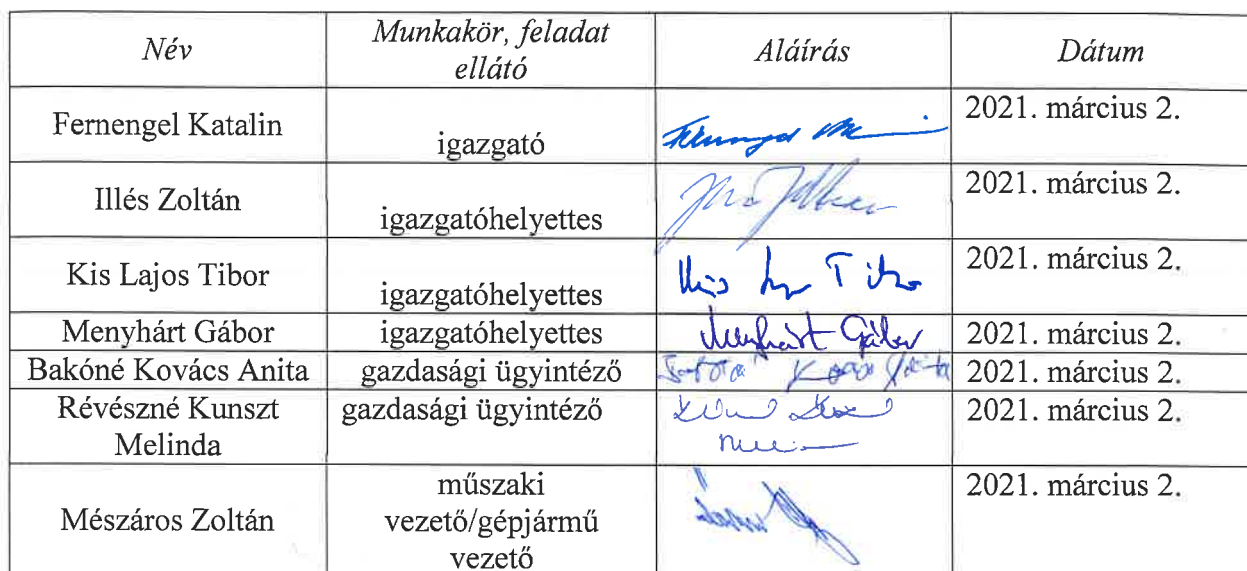 Név
Munkakör, feladat
ellátó
Aláírás
Dátum
Fernengel Katalin
igazgató
2021. március 2.
Illés Zoltán
igazgatóhelyettes
2021. március 2.
Kis Lajos Tibor
igazgatóhelyettes
Kis Lajos Tibor
2021. március 2.
Menyhárt Gábor
igazgatóhelyettes
Menyhárt Gábor
2021. március 2.
Bakóné Kovács Anita
gazdasági ügyintéző
2021. március 2.
Révészné Kunszt
Melinda
gazdasági ügyintéző
2021. március 2.
Mészáros Zoltán
műszaki
vezető/gépjármű
vezető
2021. március 2.